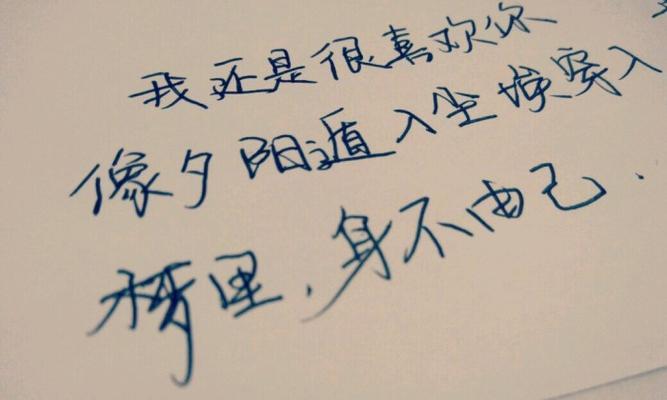 我还是很喜欢你
像夕阳遁入尘埃穿入
里，身不由己.